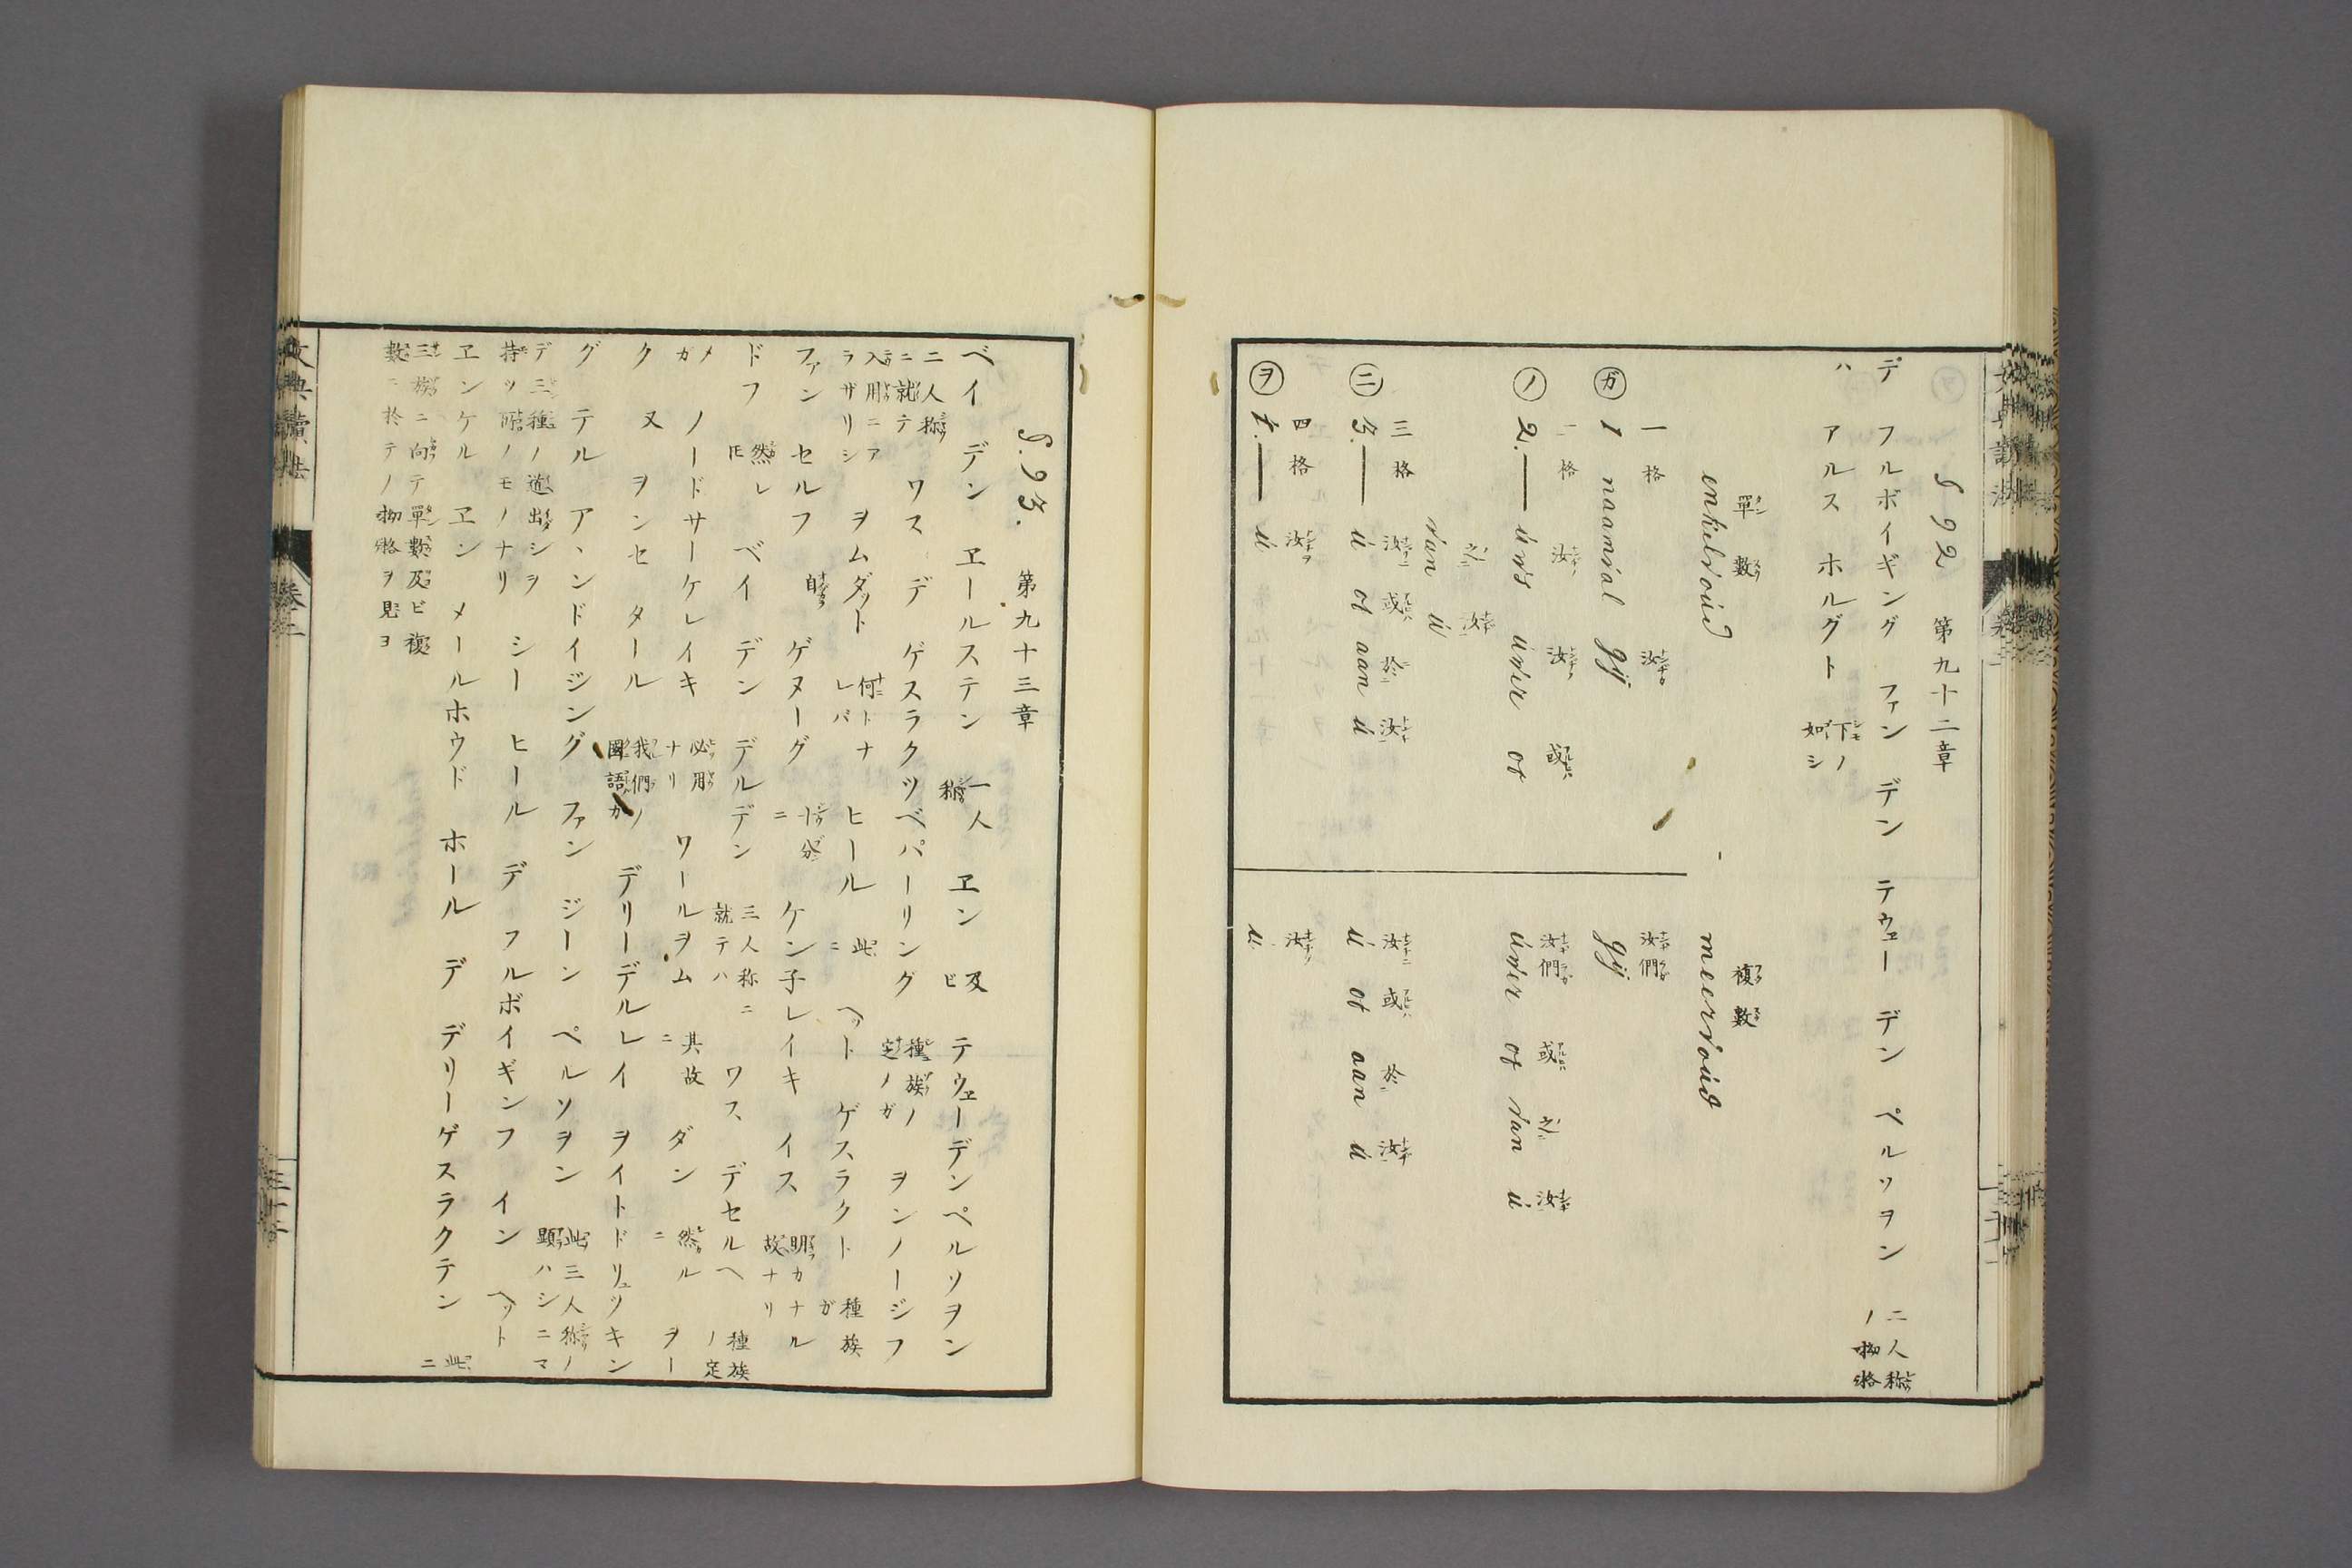 § 92 第九十二章
デ フルボイギング ファン デン テウェー デン ペルソヲン 二人称ノ
ハ アルス ホルグト 下ノ如シ
單數 複數
enkelvoúd meervoúd
一格 汝 汝們
ガ 1 naamval gÿ gÿ
二格 汝 汝 或 汝們 或 汝
ノ 2. — úws úwer of úwer of van ú
汝
van ú
三格 汝 或 於 汝 汝 或 於 汝
ニ 3. — ú of aan ú ú of aan ú
四格 汝 汝
ヲ 4. — ú ú
§. 93. 第九十三章
ベイ デン ヱールステン 一人称 ヱン 及ビ テウェーデンペルソヲン
二人称ニ就テ ワス デ ゲスラクツベパーリング 種族ノ定ノガ ヲンノージフ
入用ニアラザリシ ヲムダット 何トナレバ ヒール 此ニ ヘット ゲスラクト 種族ガ
ファン セルフ 自 ゲヌーグ 十分ニ ケン子レイキ イス 明カナル故ナリ
ドフ 然レ𪜈 ベイ デン デルデン 三人称ニ就テハ ワス デセルヘ 種族ノ定
メガ ノードサーケレイキ 必用ナリ ワールヲム 其故ニ ダン 然ルニ ヲー
ク 又 ヲンセ タール 我們ノ國語ガ デリーデルレイ ヲイトドリュツキン
グ テル アヽンドイジング ファン ジーン ペルソヲン 此三人称ノ顕ハシニマ
デ三種ノ道出シヲ持ツ所ノモノナリ シー ヒール デ フルボイギンフ イン ヘット
ヱンケル ヱン メールホウド ホール デ デリーゲスラクテン 此ニ
三族ニ向テ單數及ビ複數ニ於テノ
文典讀法 卷二